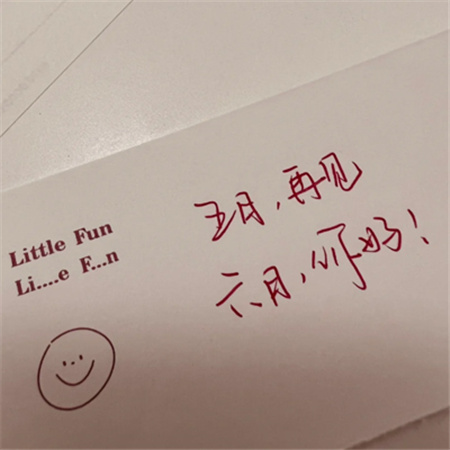 Little Fun
Li....e F...n
五月，再见
六月，你好！